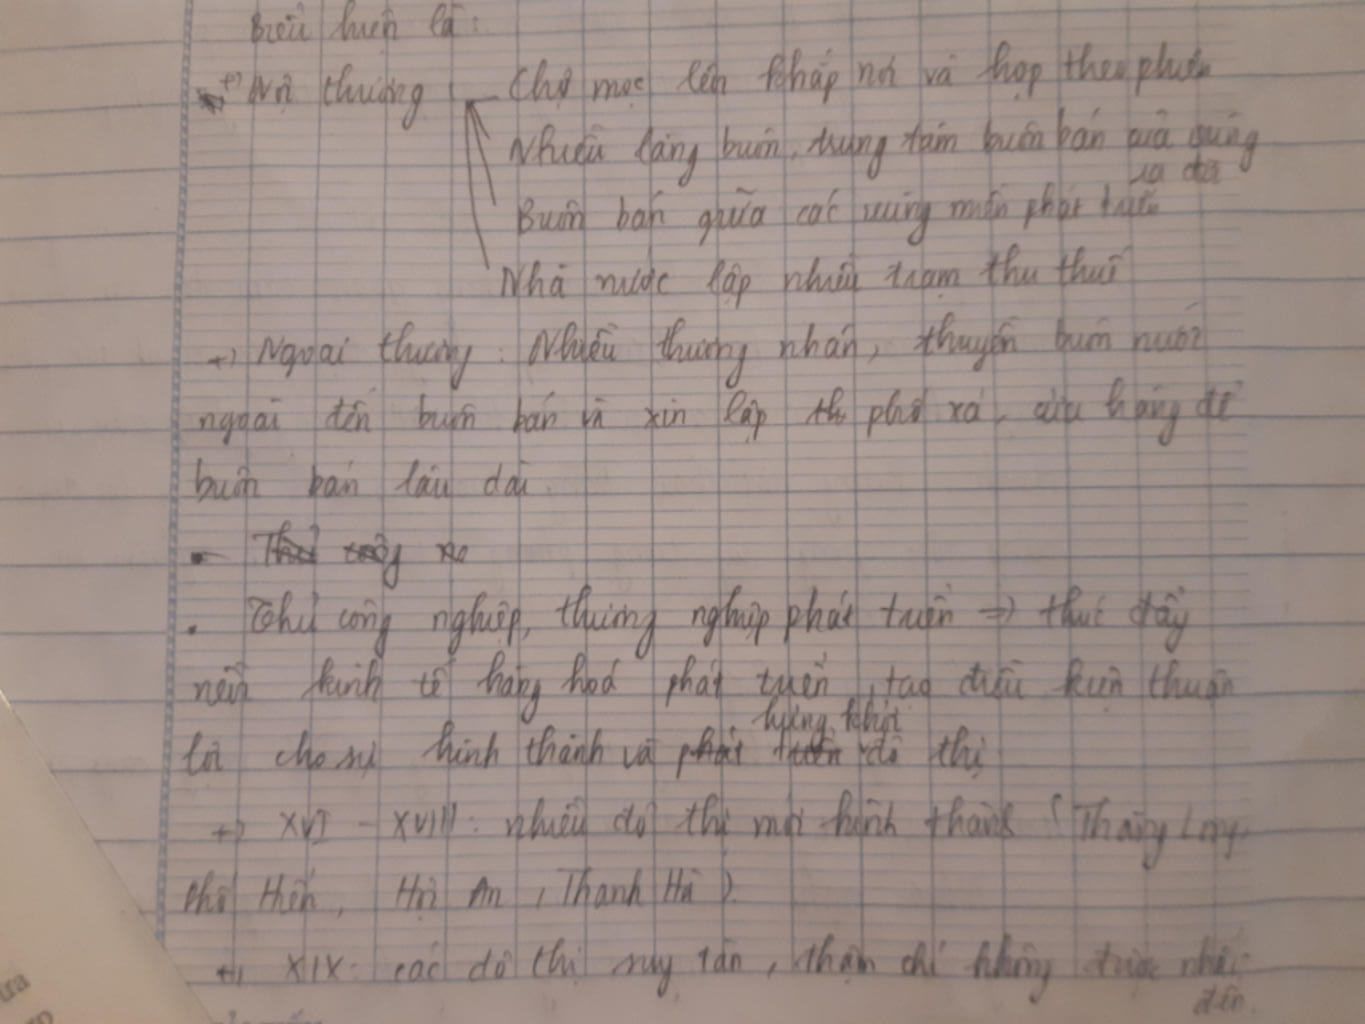 Biểu hiện là:
+) Nội thương - Chợ mọc lên khắp nơi và họp theo phiên
Nhiều làng buôn, trung tâm buôn bán của vùng
ra đời
Buôn bán giữa các vùng miền phát triển
Nhà nước lập nhiều trạm thu thuế
+) Ngoại thương: Nhiều thương nhân, thuyền buôn nước
ngoài đến buôn bán và xin lập th phố xá, cửa hàng để
buôn bán lâu dài.
. Thủ công nghiệp, thương nghiệp phát triển => thúc đẩy
nền kinh tế hàng hoá phát triển, tạo điều kiện thuận
hưng khởi
lợi cho sự hình thành và phát triển đô thị
+) XVI - XVIII: nhiều đô thị mới hình thành (Thăng Long,
Phố Hiến, Hội An, Thanh Hà)
+) XIX: các đô thị suy tàn, thậm chí không được nhắc
đến.